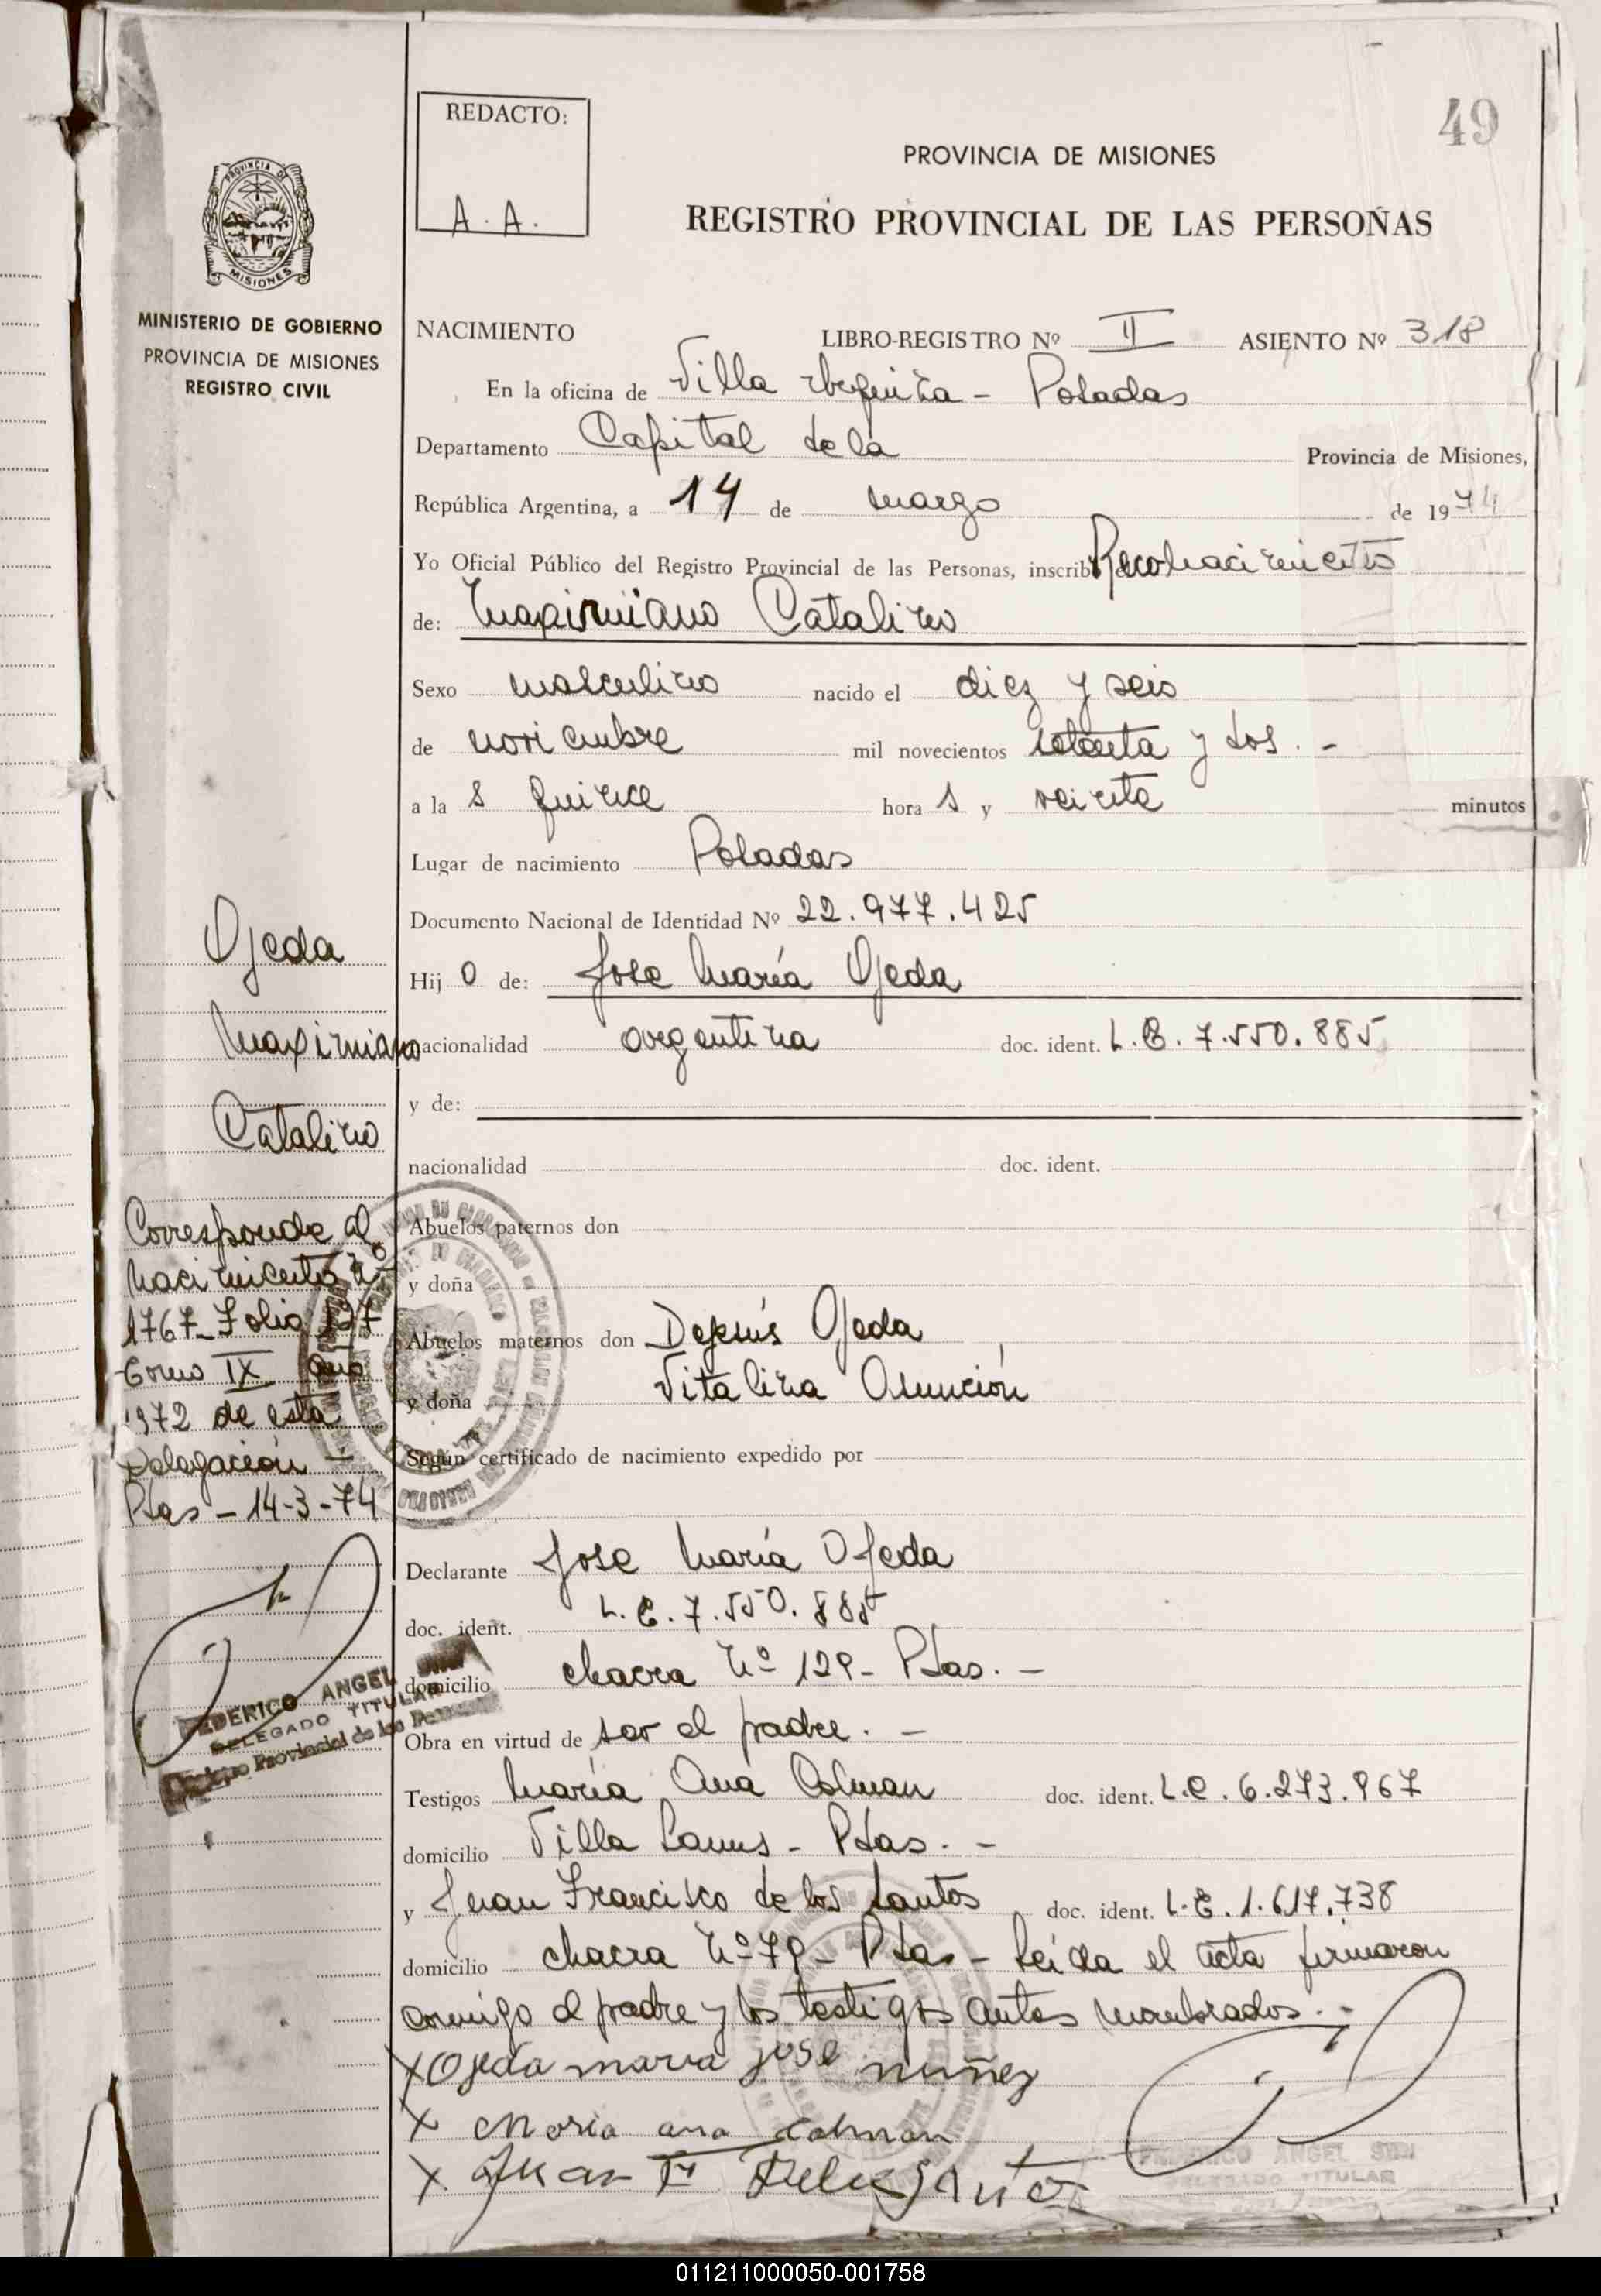 49
REDACTO:
A. A.
PROVINCIA DE MISIONES
REGISTRO PROVINCIAL DE LAS PERSONAS
PROVINCIA DE
MISIONES
MINISTERIO DE GOBIERNO
PROVINCIA DE MISIONES
REGISTRO CIVIL
NACIMIENTO LIBRO-REGISTRO Nº II ASIENTO Nº 318
En la oficina de Villa Urquiza - Posadas
Departamento Capital de la Provincia de Misiones,
República Argentina, a 14 de marzo de 1974
Yo Oficial Público del Registro Provincial de las Personas, inscribo Reconocimiento
de: Maximiano Catalino
Sexo masculino nacido el diez y seis
de noviembre mil novecientos setenta y dos. -
a la s quince hora s y veinte minutos
Lugar de nacimiento Posadas
Documento Nacional de Identidad Nº 22.977.425
Hij o de: Jose María Ojeda
nacionalidad argentina doc. ident. L.E. 7.550.885
y de:
nacionalidad doc. ident.
Abuelos paternos don
y doña
Abuelos maternos don Dejesús Ojeda
y doña Vitalina Asunción
Según certificado de nacimiento expedido por
Declarante Jose María Ojeda
doc. ident. L.E. 7.550.885
domicilio chacra Nº 129- Pdas. -
Obra en virtud de ser el padre. -
Testigos María Ana Colman doc. ident. L.C. 6.273.967
domicilio Villa Lanus - Pdas. -
y Juan Francisco de los Santos doc. ident. L.E. 1.617.738
domicilio chacra Nº 79- Pdas - Leída el acta firmaron
conmigo el padre y los testigos antes nombrados. -
X Ojeda maria jose nuñez
X Maria ana colman
X Juan F
ANGEL
DELEGADO TITULAR
Ojeda
Maximiano
Catalino
Corresponde al
nacimiento nº
1767- Folio 127
tomo IX año
1972 de esta
Delegación -
Pdas - 14-3-74
FEDERICO ANGEL
DELEGADO TITULAR
Registro Provincial de las Personas
011211000050-001758